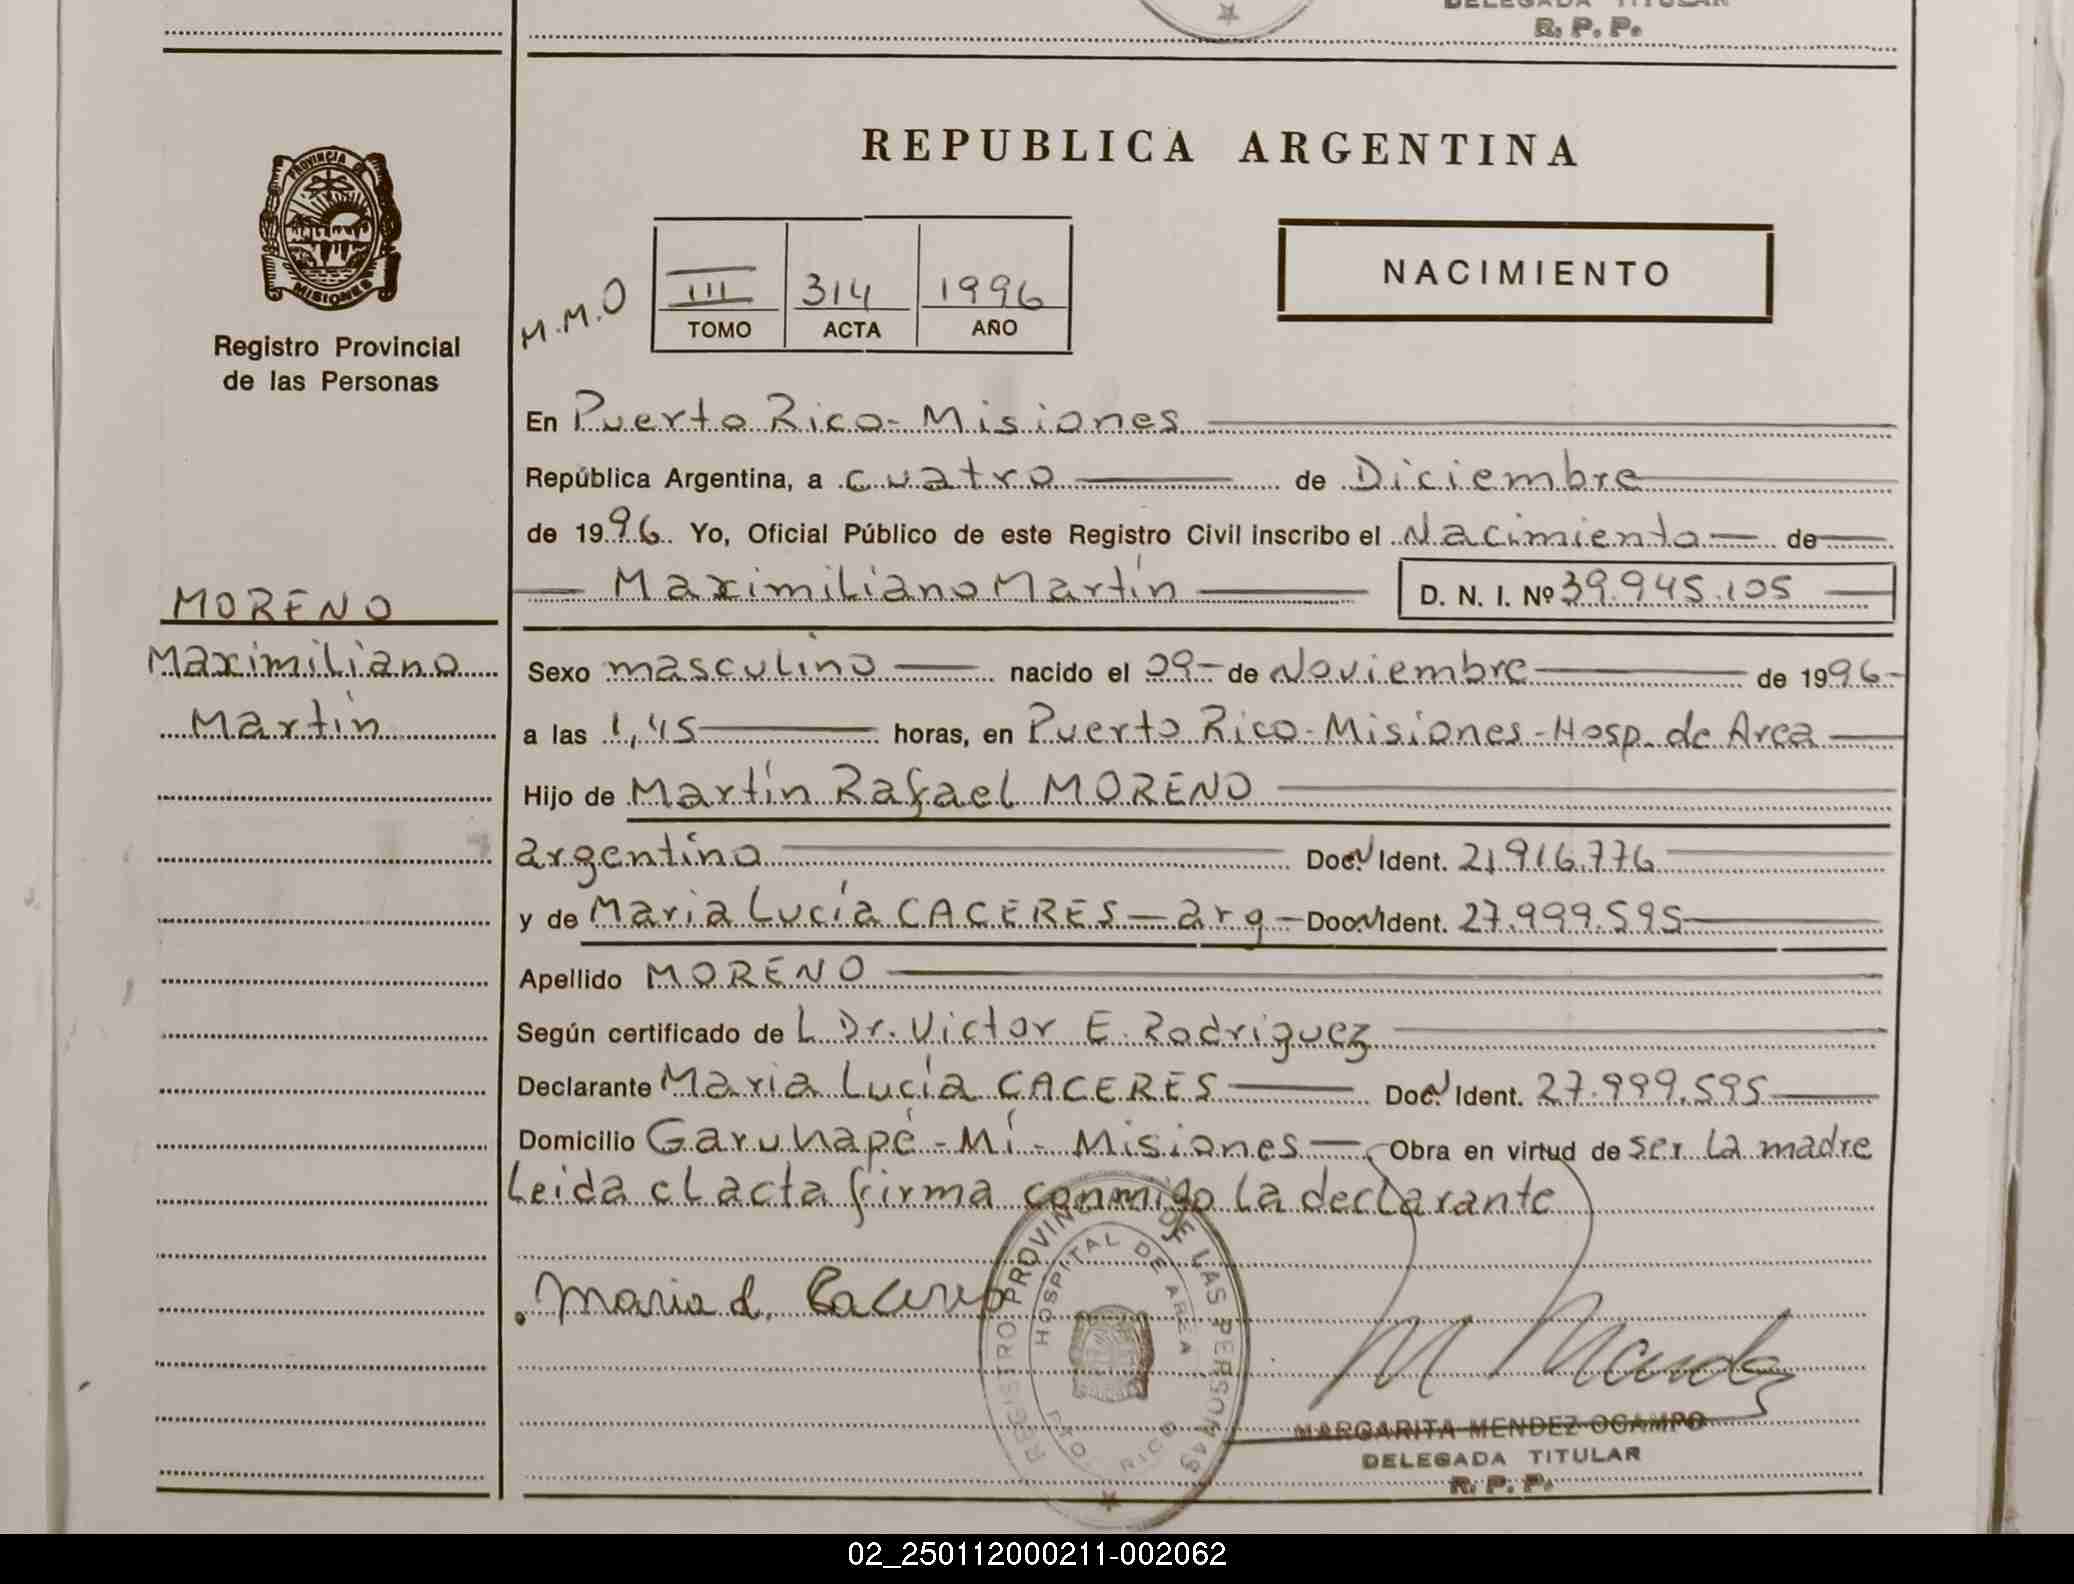 DELEGADA TITULAR
R. P. P.
PROVINCIA DE
MISIONES
Registro Provincial
de las Personas
REPUBLICA ARGENTINA
NACIMIENTO
M.M.O
III 314 1996
TOMO ACTA AÑO
En Puerto Rico - Misiones
República Argentina, a cuatro de Diciembre
de 1996. Yo, Oficial Público de este Registro Civil inscribo el Nacimiento de
Maximiliano Martín D. N. I. Nº 39.945.105
MORENO
Maximiliano
Martín
Sexo masculino nacido el 09 - de Noviembre de 1996 -
a las 1,45 horas, en Puerto Rico - Misiones - Hosp. de Area
Hijo de Martín Rafael MORENO
argentino Doc. N Ident. 21.916.776
y de Maria Lucía CACERES - arg - Doc. N Ident. 27.999.595
Apellido MORENO
Según certificado de L Dr. Victor E. Rodriguez
Declarante Maria Lucía CACERES Doc. N Ident. 27.999.595
Domicilio Garuhapé - Mí - Misiones Obra en virtud de ser la madre
Leida el acta firma conmigo la declarante
Maria L. Caceres
REGISTRO PROVINCIAL DE LAS PERSONAS
HOSPITAL DE AREA
PTO. RICO
M Mendez
MARGARITA MENDEZ OCAMPO
DELEGADA TITULAR
R. P. P.
02_250112000211-002062